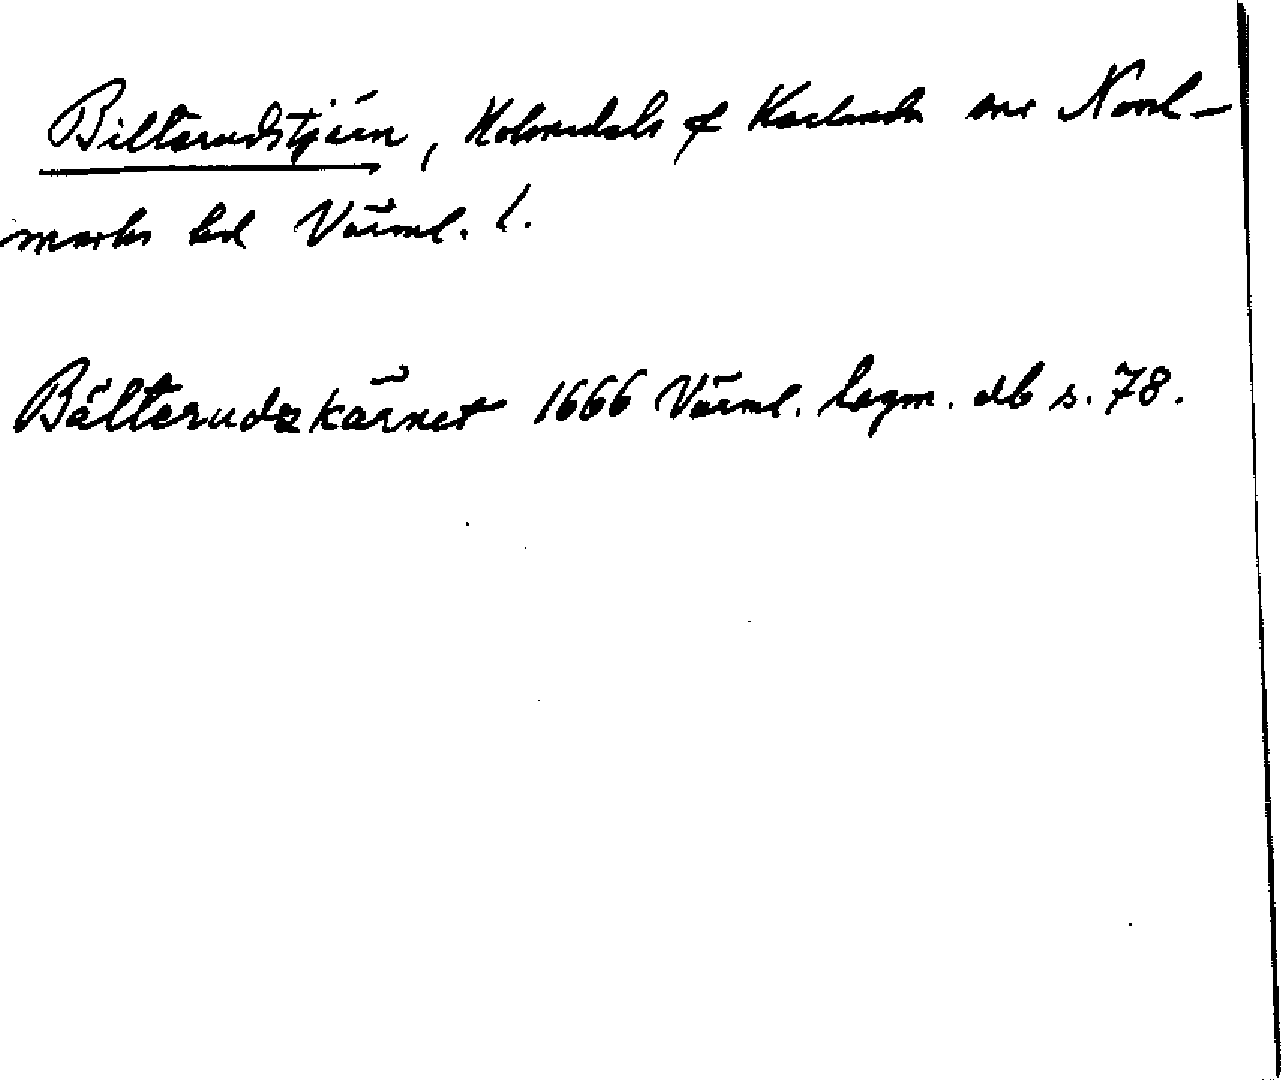 Bilterudstjärn, Holmedals f Karlanda snr Nord-
marks hd Värml. l.
Bälterudzkärnet 1666 Värml. lagm. db s. 78.